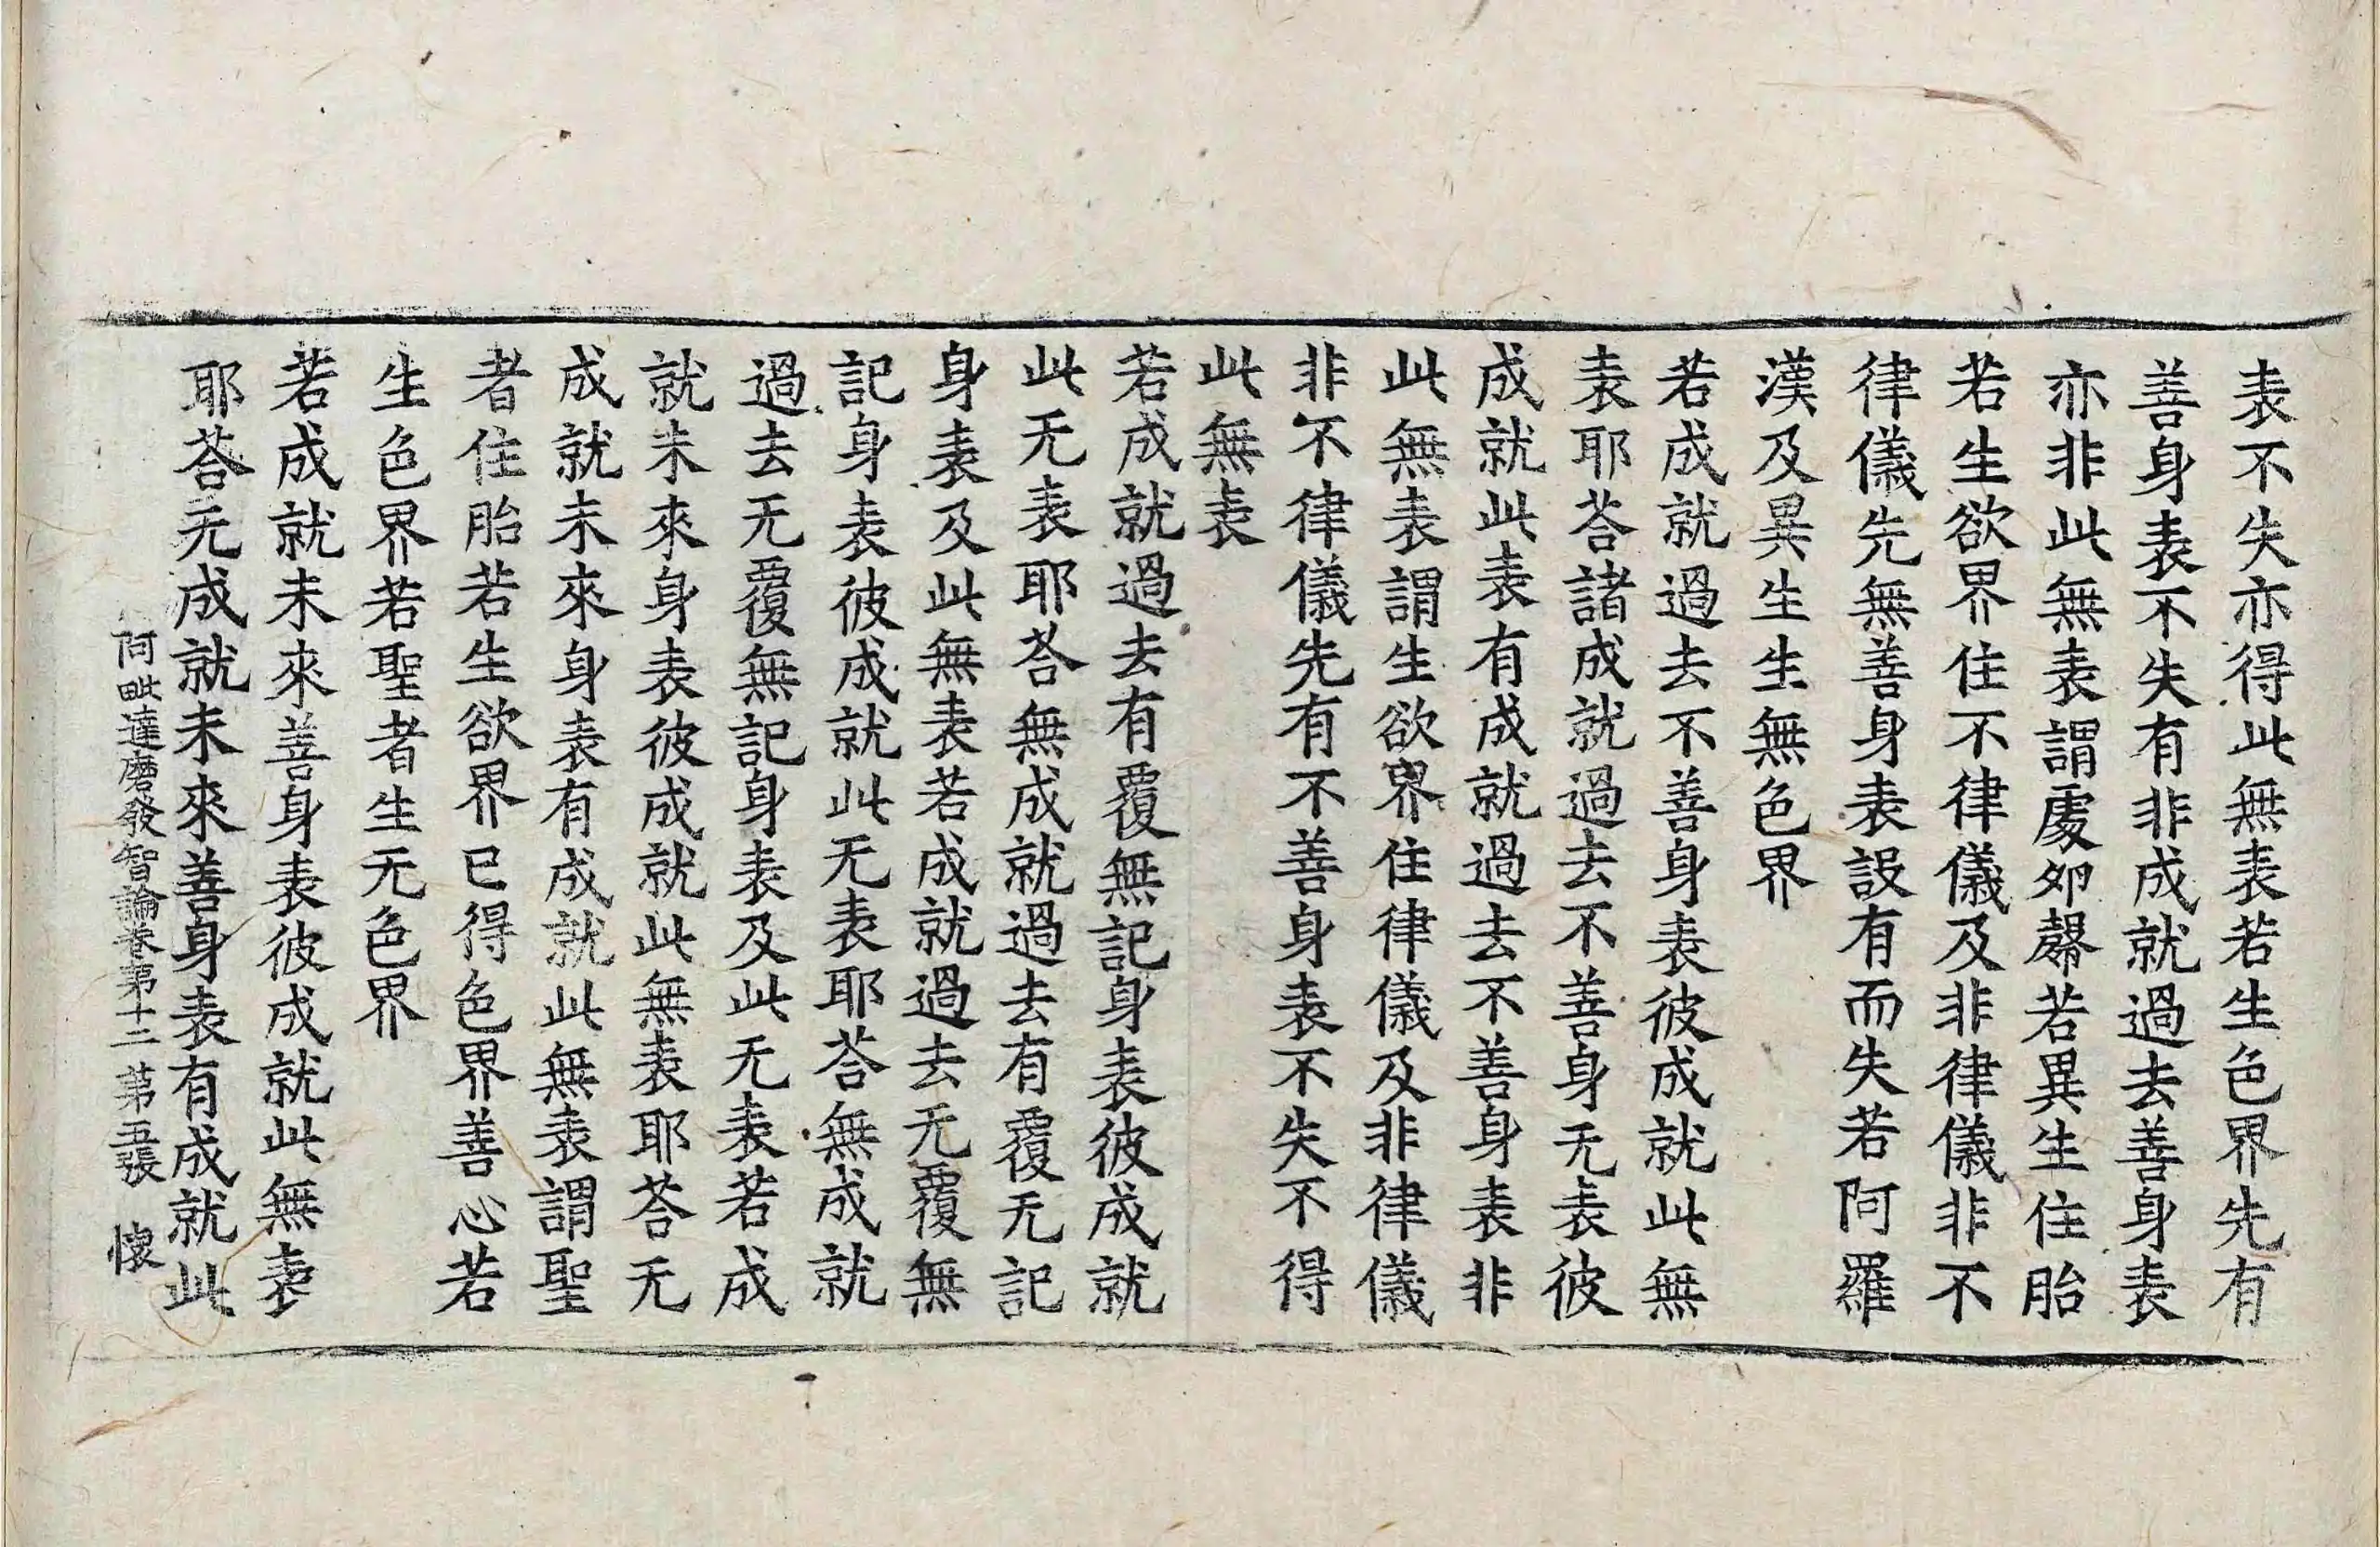 表不失亦得此無表若生色界先有
善身表不失有非成就過去善身表
亦非此無表謂處夘㲉若異生住胎
若生欲界住不律儀及非律儀非不
律儀先無善身表設有而失若阿羅
漢及異生生無色界
若成就過去不善身表彼成就此無
表耶荅諸成就過去不善身无表彼
成就此表有成就過去不善身表非
此無表謂生欲界住律儀及非律儀
非不律儀先有不善身表不失不得
此無表
若成就過去有覆無記身表彼成就
此无表耶荅無成就過去有覆无記
身表及此無表若成就過去无覆無
記身表彼成就此无表耶荅無成就
過去无覆無記身表及此无表若成
就未來身表彼成就此無表耶荅无
成就未來身表有成就此無表謂聖
者住胎若生欲界已得色界善心若
生色界若聖者生无色界
若成就未來善身表彼成就此無表
耶荅无成就未來善身表有成就此
阿毗達磨發智論卷苐十二 苐五張 懷